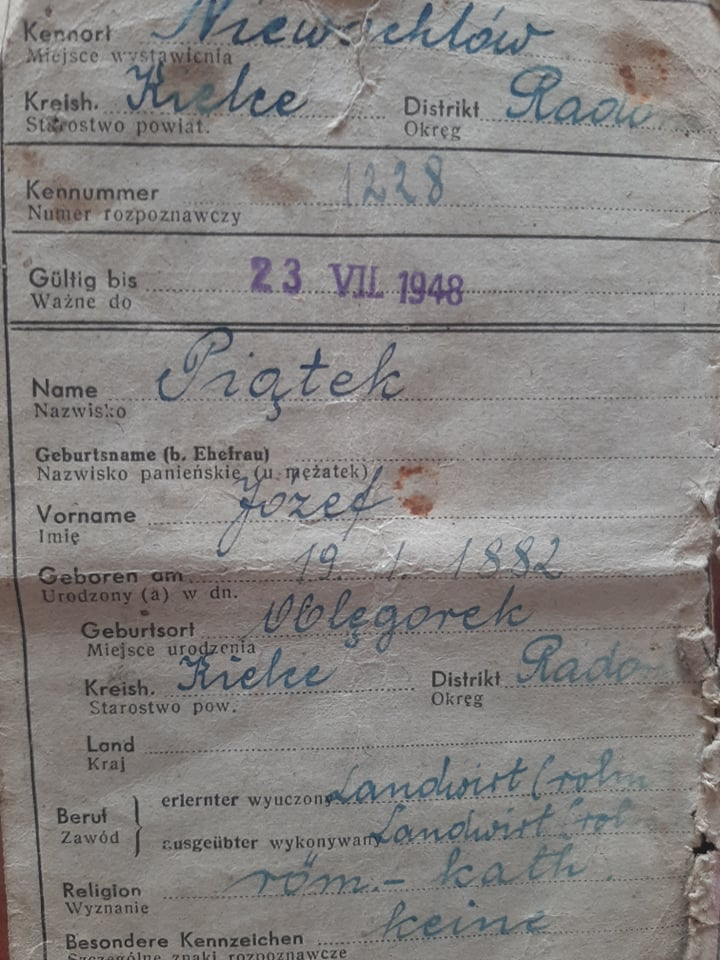 Kennort Niewachlów
Miejsce wystawienia
Kreish. Kielce Distrikt Rado
Starostwo powiat. Okręg
Kennummer 1228
Numer rozpoznawczy
Gültig bis 23 VII. 1948
Ważne do
Name Piątek
Nazwisko
Geburtsname (b. Ehefrau)
Nazwisko panieńskie (u mężatek)
Vorname Józef
Imię
Geboren am 19. 1. 1882
Urodzony (a) w dn.
Geburtsort Oblęgorek
Miejsce urodzenia
Kreish. Kielce Distrikt Rado
Starostwo pow. Okręg
Land
Kraj
Beruf erlernter wyuczony Landwirt (roln
Zawód ausgeübter wykonywany Landwirt (rol
Religion röm.-kath.
Wyznanie
Besondere Kennzeichen keine
Szczególne znaki rozpoznawcze